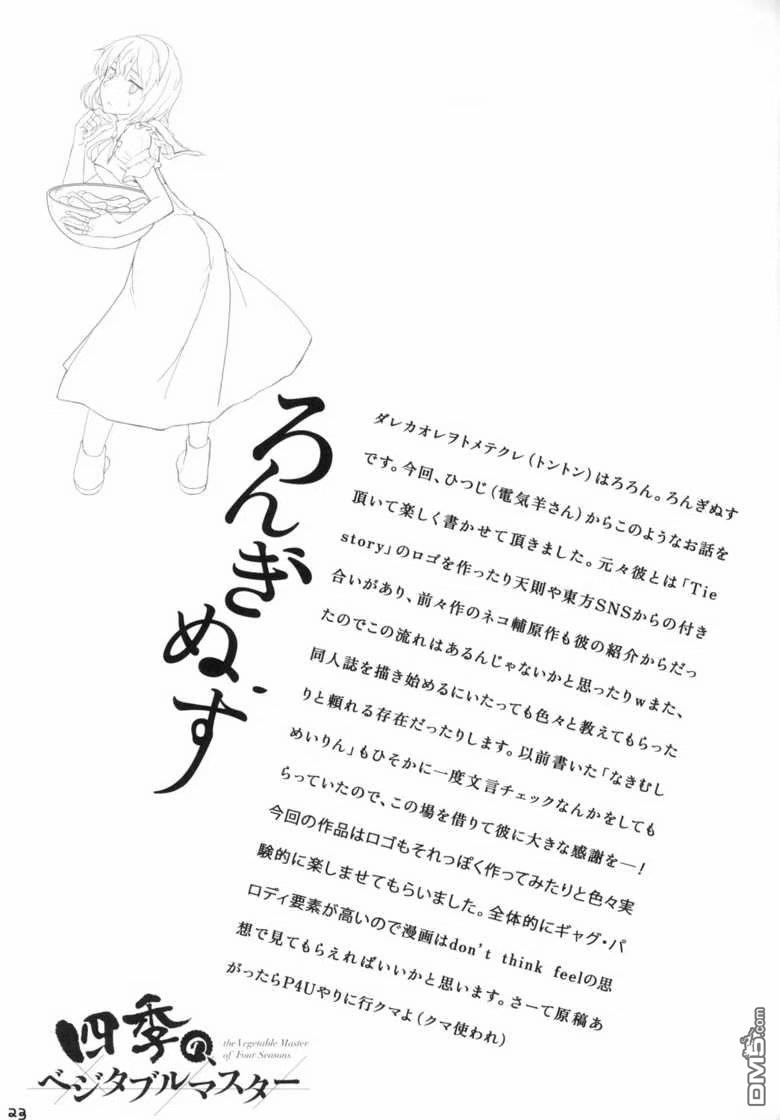 ろんぎぬす
ダレカオレヲトメテクレ(トントン)はろろん。ろんぎぬす
です。今回、ひつじ(電気羊さん)からこのようなお話を
頂いて楽しく書かせて頂きました。元々彼とは「Tie
story」のロゴを作ったり天則や東方SNSからの付き
合いがあり、前々作のネコ輔原作も彼の紹介からだっ
たのでこの流れはあるんじゃないかと思ったりwまた、
同人誌を描き始めるにいたっても色々と教えてもらった
りと頼れる存在だったりします。以前書いた「なきむし
めいりん」もひそかに一度文言チェックなんかをしても
らっていたので、この場を借りて彼に大きな感謝を―!
今回の作品はロゴもそれっぽく作ってみたりと色々実
験的に楽しませてもらいました。全体的にギャグ・パ
ロディ要素が高いので漫画はdon't think feelの思
想で見てもらえればいいかと思います。さーて原稿あ
がったらP4Uやりに行クマよ(クマ使われ)
四季の、
the Vegetable Master
of Four Seasons
ベジタブルマスター
23
DM5.com